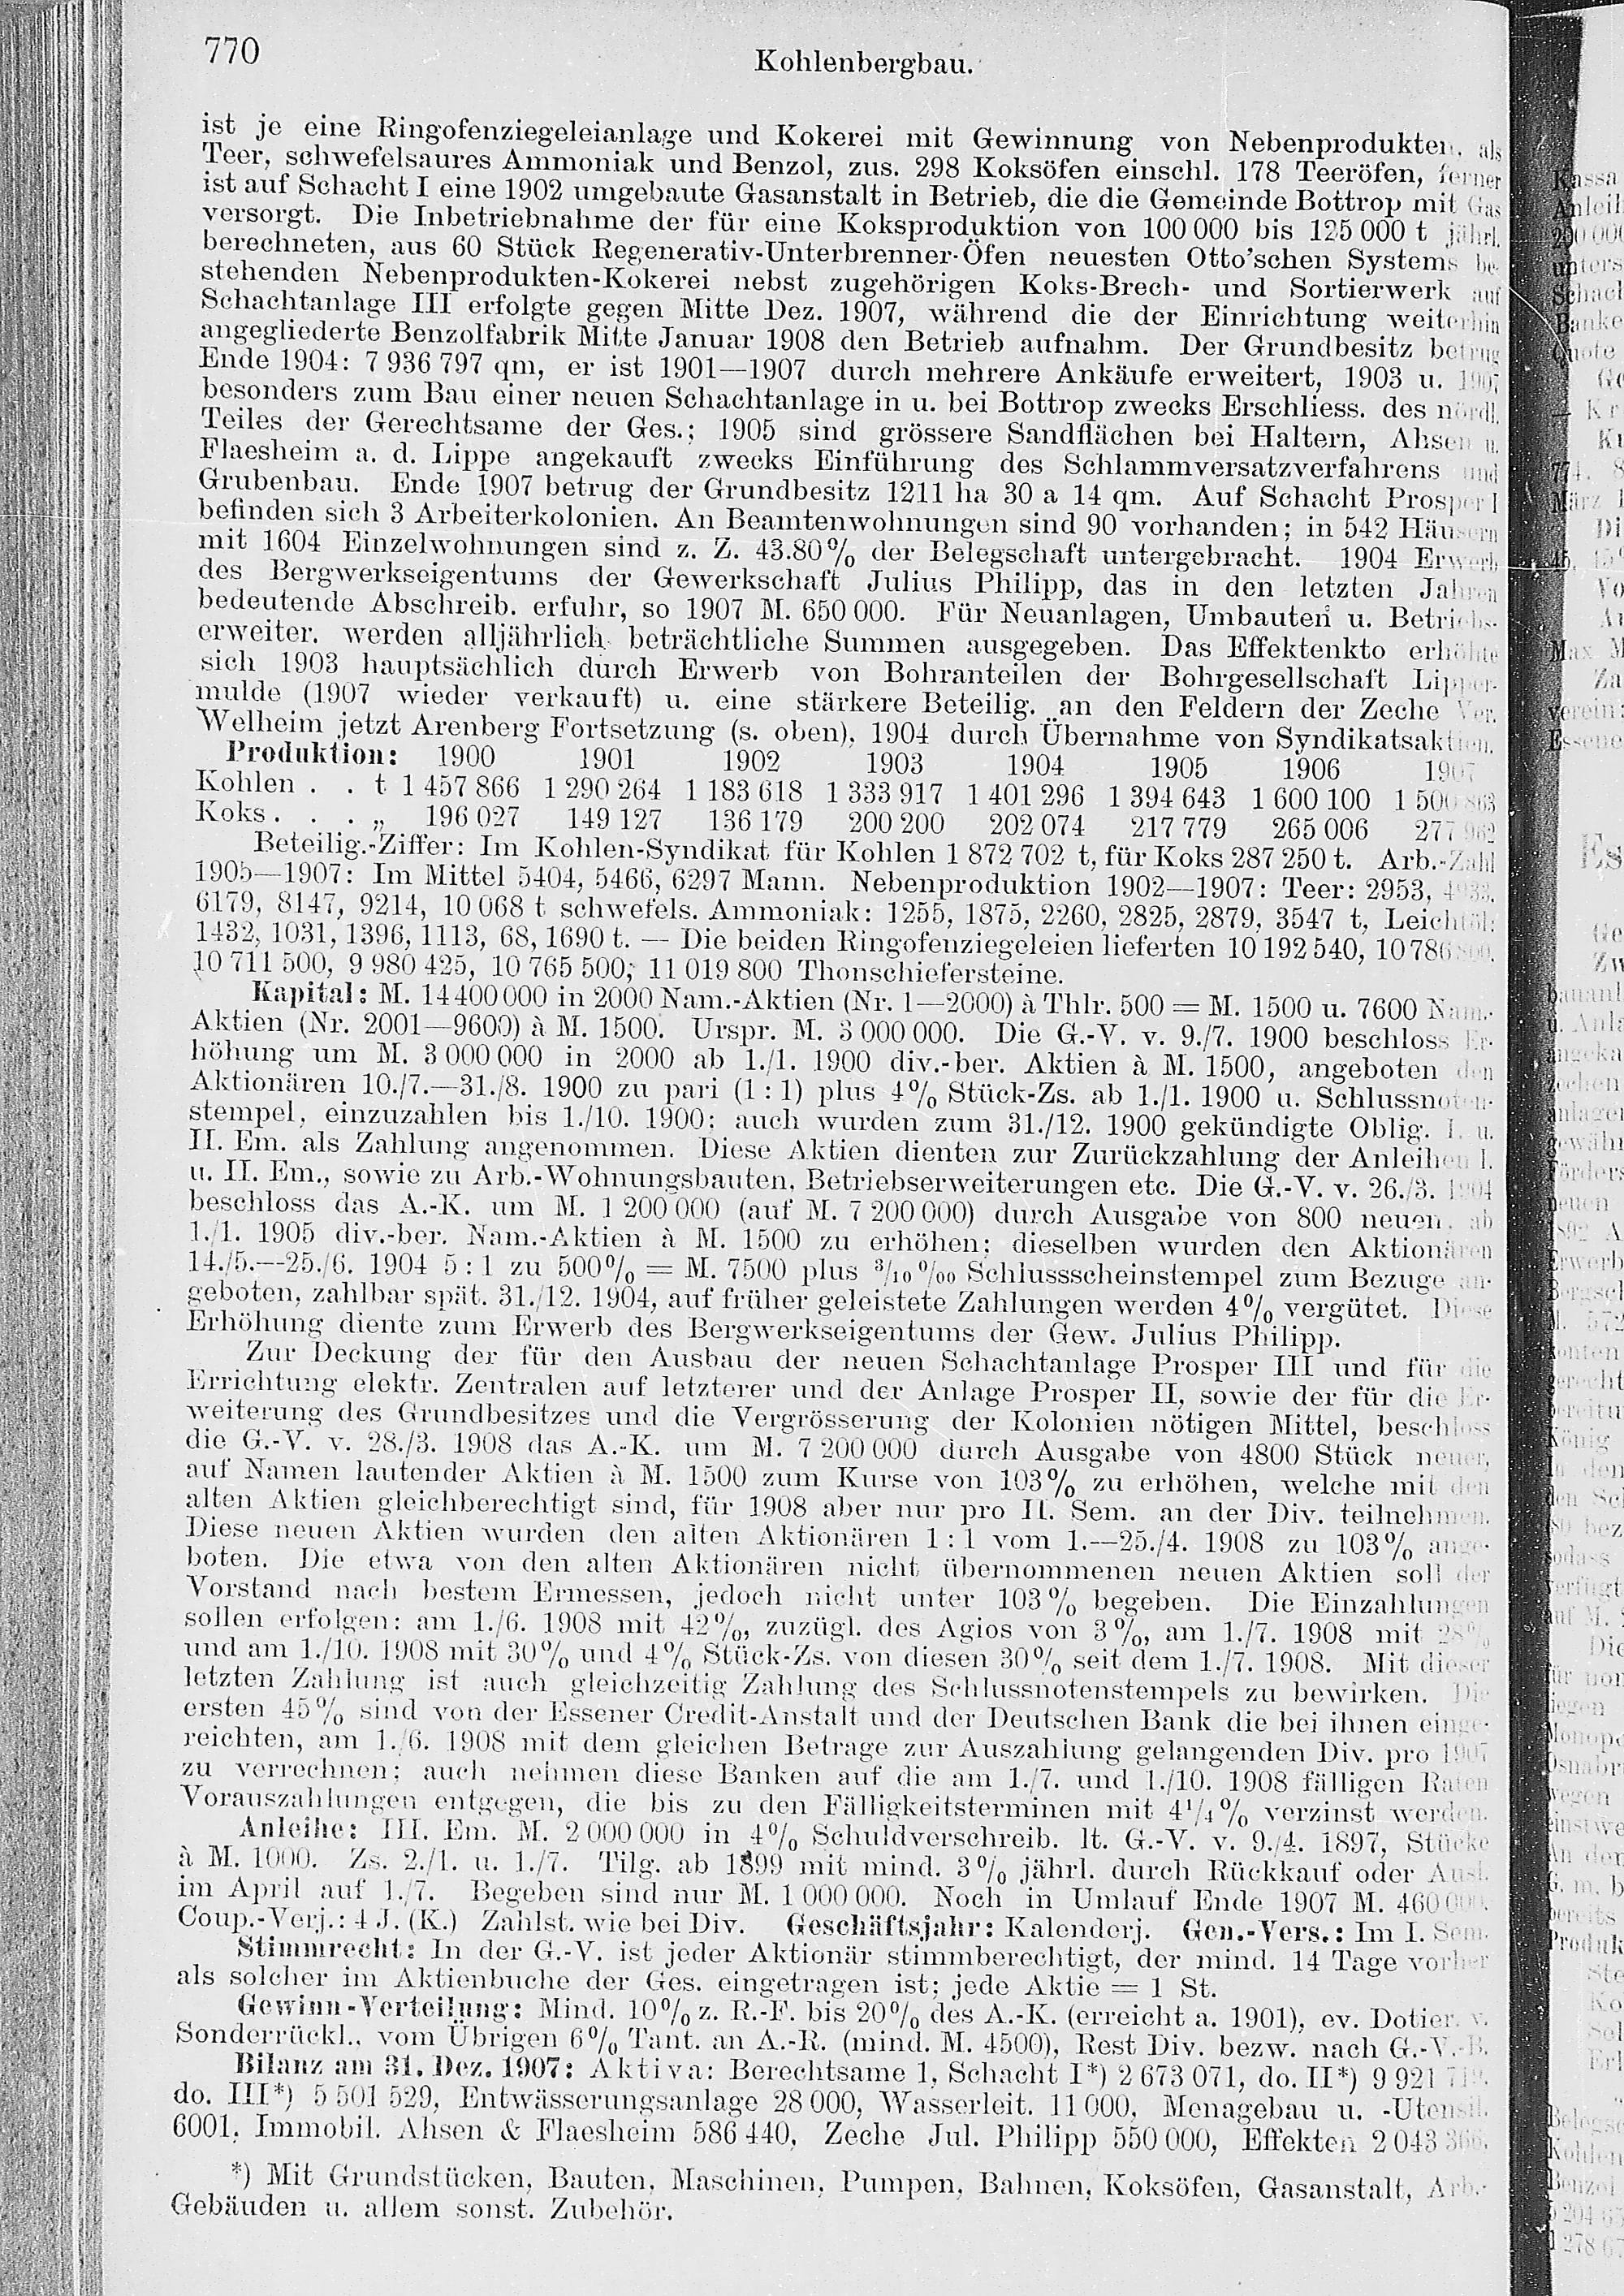 770
Kohlenbergbau.
ist je eine Ringofenziegeleianlage und Kokerei mit Gewinnung von Nebenprodukten, als
Teer, schwefelsaures Ammoniak und Benzol, zus. 298 Koksöfen einschl. 178 Teeröfen, ferner
ist auf Schacht I eine 1902 umgebaute Gasanstalt in Betrieb, die die Gemeinde Bottrop mit Gas
versorgt. Die Inbetriebnahme der für eine Koksproduktion von 100 000 bis 125 000 t jährl.
berechneten, aus 60 Stück Regenerativ-Unterbrenner-Öfen neuesten Otto'schen Systems be-
stehenden Nebenprodukten-Kokerei nebst zugehörigen Koks-Brech- und Sortierwerk auf
Schachtanlage III erfolgte gegen Mitte Dez. 1907, während die der Einrichtung weiterhin
angegliederte Benzolfabrik Mitte Januar 1908 den Betrieb aufnahm. Der Grundbesitz betrug
Ende 1904: 7 936 797 qm, er ist 1901—1907 durch mehrere Ankäufe erweitert, 1903 u. 1907
besonders zum Bau einer neuen Schachtanlage in u. bei Bottrop zwecks Erschliess. des nördl.
Teiles der Gerechtsame der Ges.; 1905 sind grössere Sandflächen bei Haltern, Ahsen u.
Flaesheim a. d. Lippe angekauft zwecks Einführung des Schlammversatzverfahrens und
Grubenbau. Ende 1907 betrug der Grundbesitz 1211 ha 30 a 14 qm. Auf Schacht Prosper I
befinden sich 3 Arbeiterkolonien. An Beamtenwohnungen sind 90 vorhanden; in 542 Häusern
mit 1604 Einzelwohnungen sind z. Z. 43.80% der Belegschaft untergebracht. 1904 Erwerb
des Bergwerkseigentums der Gewerkschaft Julius Philipp, das in den letzten Jahren
bedeutende Abschreib. erfuhr, so 1907 M. 650 000. Für Neuanlagen, Umbauten u. Betriebs-
erweiter. werden alljährlich beträchtliche Summen ausgegeben. Das Effektenkto erhöhte
sich 1903 hauptsächlich durch Erwerb von Bohranteilen der Bohrgesellschaft Lipper-
mulde (1907 wieder verkauft) u. eine stärkere Beteilig. an den Feldern der Zeche Ver.
Welheim jetzt Arenberg Fortsetzung (s. oben), 1904 durch Übernahme von Syndikatsaktien.
Produktion: 1900 1901 1902 1903 1904 1905 1906 1907
Kohlen . . t 1 457 866 1 290 264 1 183 618 1 333 917 1 401 296 1 394 643 1 600 100 1 500 863
Koks . . . „ 196 027 149 127 136 179 200 200 202 074 217 779 265 006 277 962
Beteilig.-Ziffer: Im Kohlen-Syndikat für Kohlen 1 872 702 t, für Koks 287 250 t. Arb.-Zahl
1905—1907: Im Mittel 5404, 5466, 6297 Mann. Nebenproduktion 1902—1907: Teer: 2953, 4933,
6179, 8147, 9214, 10 068 t schwefels. Ammoniak: 1255, 1875, 2260, 2825, 2879, 3547 t, Leichtöl:
1432, 1031, 1396, 1113, 68, 1690 t. — Die beiden Ringofenziegeleien lieferten 10 192 540,
10 711 500, 9 980 425, 10 765 500, 11 019 800 Thonschiefersteine.
Kapital: M. 14 400 000 in 2000 Nam.-Aktien (Nr. 1—2000) à Thlr. 500 = M. 1500 u. 7600 Nam.-
Aktien (Nr. 2001—9600) à M. 1500. Urspr. M. 3 000 000. Die G.-V. v. 9./7. 1900 beschloss Er-
höhung um M. 3 000 000 in 2000 ab 1./1. 1900 div.-ber. Aktien à M. 1500, angeboten den
Aktionären 10./7.—31./8. 1900 zu pari (1 : 1) plus 4% Stück-Zs. ab 1./1. 1900 u. Schlussnoten-
stempel, einzuzahlen bis 1./10. 1900; auch wurden zum 31./12. 1900 gekündigte Oblig. I. u.
II. Em. als Zahlung angenommen. Diese Aktien dienten zur Zurückzahlung der Anleihen I.
u. II. Em., sowie zu Arb.-Wohnungsbauten, Betriebserweiterungen etc. Die G.-V. v. 26./3. 1904
beschloss das A.-K. um M. 1 200 000 (auf M. 7 200 000) durch Ausgabe von 800 neuen, ab
1./1. 1905 div.-ber. Nam.-Aktien à M. 1500 zu erhöhen; dieselben wurden den Aktionären
14./5.—25./6. 1904 5 : 1 zu 500% = M. 7500 plus 3/10 ‰ Schlussscheinstempel zum Bezuge an-
geboten, zahlbar spät. 31./12. 1904, auf früher geleistete Zahlungen werden 4% vergütet. Diese
Erhöhung diente zum Erwerb des Bergwerkseigentums der Gew. Julius Philipp.
Zur Deckung der für den Ausbau der neuen Schachtanlage Prosper III und für die
Errichtung elektr. Zentralen auf letzterer und der Anlage Prosper II, sowie der für die Er-
weiterung des Grundbesitzes und die Vergrösserung der Kolonien nötigen Mittel, beschloss
die G.-V. v. 28./3. 1908 das A.-K. um M. 7 200 000 durch Ausgabe von 4800 Stück neuer,
auf Namen lautender Aktien à M. 1500 zum Kurse von 103% zu erhöhen, welche mit den
alten Aktien gleichberechtigt sind, für 1908 aber nur pro II. Sem. an der Div. teilnehmen.
Diese neuen Aktien wurden den alten Aktionären 1 : 1 vom 1.—25./4. 1908 zu 103% ange-
boten. Die etwa von den alten Aktionären nicht übernommenen neuen Aktien soll der
Vorstand nach bestem Ermessen, jedoch nicht unter 103% begeben. Die Einzahlungen
sollen erfolgen: am 1./6. 1908 mit 42%, zuzügl. des Agios von 3%, am 1./7. 1908 mit 28%
und am 1./10. 1908 mit 30% und 4% Stück-Zs. von diesen 30% seit dem 1./7. 1908. Mit dieser
letzten Zahlung ist auch gleichzeitig Zahlung des Schlussnotenstempels zu bewirken. Die
ersten 45% sind von der Essener Credit-Anstalt und der Deutschen Bank die bei ihnen einge-
reichten, am 1./6. 1908 mit dem gleichen Betrage zur Auszahlung gelangenden Div. pro 1907
zu verrechnen; auch nehmen diese Banken auf die am 1./7. und 1./10. 1908 fälligen Raten
Vorauszahlungen entgegen, die bis zu den Fälligkeitsterminen mit 4 1/4 % verzinst werden.
Anleihe: III. Em. M. 2 000 000 in 4% Schuldverschreib. lt. G.-V. v. 9./4. 1897, Stücke
à M. 1000. Zs. 2./1. u. 1./7. Tilg. ab 1899 mit mind. 3% jährl. durch Rückkauf oder Ausl.
im April auf 1./7. Begeben sind nur M. 1 000 000. Noch in Umlauf Ende 1907 M. 460 000.
Coup.-Verj.: 4 J. (K.) Zahlst. wie bei Div. Geschäftsjahr: Kalenderj. Gen.-Vers.: Im I. Sem.
Stimmrecht: In der G.-V. ist jeder Aktionär stimmberechtigt, der mind. 14 Tage vorher
als solcher im Aktienbuche der Ges. eingetragen ist; jede Aktie = 1 St.
Gewinn-Verteilung: Mind. 10% z. R.-F. bis 20% des A.-K. (erreicht a. 1901), ev. Dotier. v.
Sonderrückl., vom Übrigen 6% Tant. an A.-R. (mind. M. 4500), Rest Div. bezw. nach G.-V.-B.
Bilanz am 31. Dez. 1907: Aktiva: Berechtsame 1, Schacht I*) 2 673 071, do. II*)
do. III*) 5 501 529, Entwässerungsanlage 28 000, Wasserleit. 11 000, Menagebau u. -Utensil.
6001, Immobil. Ahsen & Flaesheim 586 440, Zeche Jul. Philipp 550 000, Effekten
*) Mit Grundstücken, Bauten, Maschinen, Pumpen, Bahnen, Koksöfen, Gasanstalt, Arb.-
Gebäuden u. allem sonst. Zubehör.